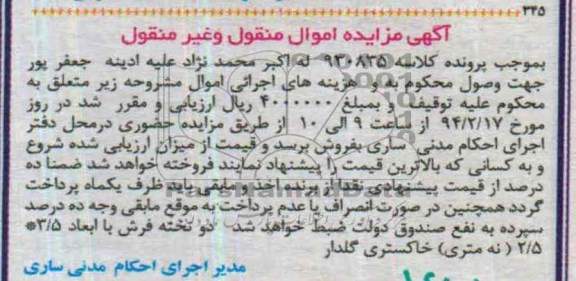 ۳۴۵
آگهی مزایده اموال منقول وغیر منقول
بموجب پرونده کلاسه ۹۳۰۸۳۵ له اکبر محمد نژاد علیه ادینه جعفر پور
جهت وصول محکوم به و هزینه های اجرائی اموال مشروحه زیر متعلق به
محکوم علیه توقیف و بمبلغ ۴۰۰۰۰۰۰ ریال ارزیابی و مقرر شد در روز
مورخ ۹۴/۲/۱۷ از ساعت ۹ الی ۱۰ از طریق مزایده حضوری درمحل دفتر
اجرای احکام مدنی ساری بفروش برسد و قیمت از میزان ارزیابی شده شروع
و به کسانی که بالاترین قیمت را پیشنهاد نمایند فروخته خواهد شد ضمنا ده
درصد از قیمت پیشنهادی نقدا از برنده اخذ و مابقی باید ظرف یکماه پرداخت
گردد همچنین در صورت انصراف یا عدم پرداخت به موقع مابقی وجه ده درصد
سپرده به نفع صندوق دولت ضبط خواهد شد دو تخته فرش با ابعاد ۳/۵*
۲/۵ ( نه متری) خاکستری گلدار
مدیر اجرای احکام مدنی ساری